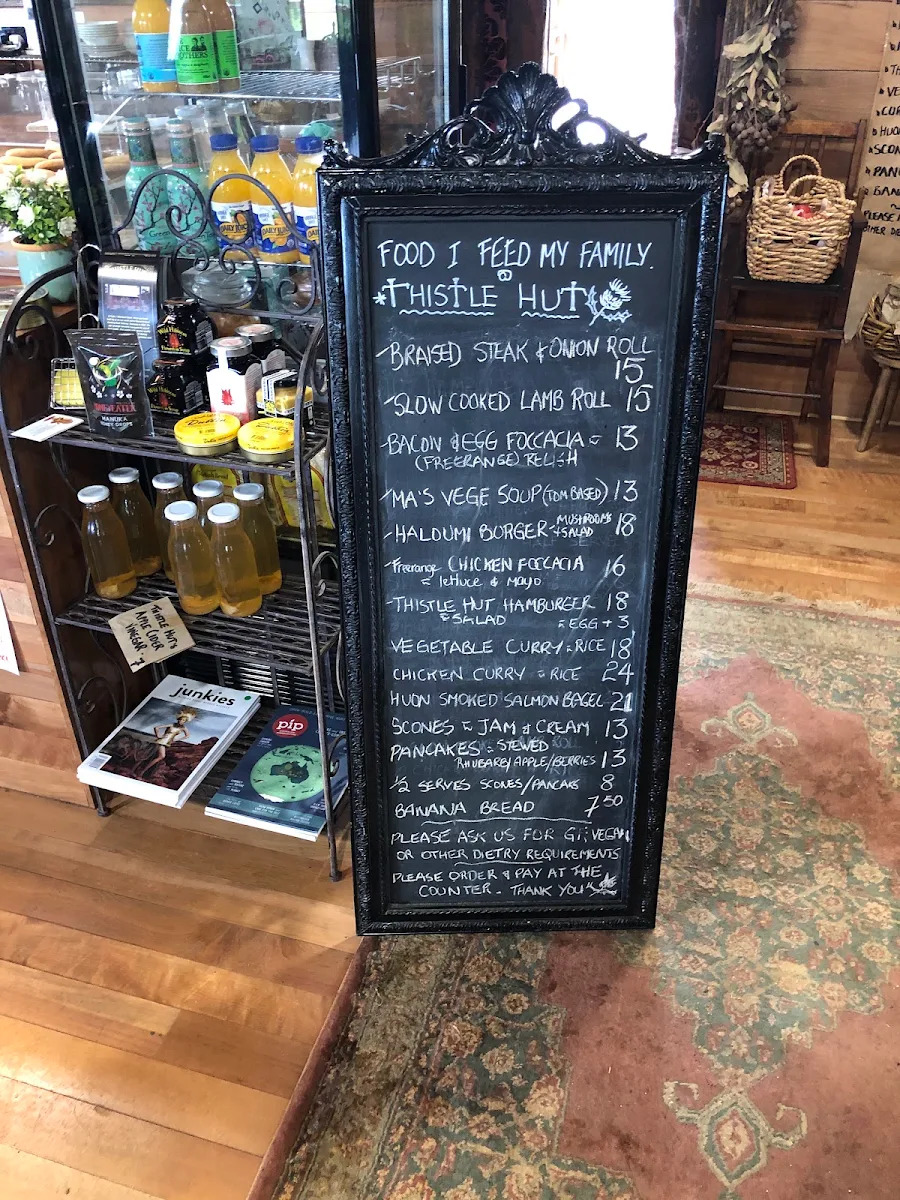 FOOD I FEED MY FAMILY.
*THISTLE HUT
BRAISED STEAK & ONION ROLL 15
SLOW COOKED LAMB ROLL 15
BACON & EGG FOCCACIA 13
(FREERANGE) RELISH
MA'S VEGE SOUP (TOM BASED) 13
HALOUMI BURGER MUSHROOMS 18
+ SALAD
Freerange CHICKEN FOCCACIA 16
lettuce & mayo
THISTLE HUT HAMBURGER 18
SALAD EGG + 3
VEGETABLE CURRY RICE 18
CHICKEN CURRY RICE 24
HUON SMOKED SALMON BAGEL 21
SCONES JAM & CREAM 13
PANCAKES STEWED
RHUBARB/APPLE/BERRIES 13
1/2 SERVES SCONES/PANCAKE 8
BANANA BREAD 7.50
PLEASE ASK US FOR GF, VEGAN
OR OTHER DIETRY REQUIREMENTS
PLEASE ORDER & PAY AT THE
COUNTER - THANK YOU
THISTLE HUT'S
APPLE CIDER
VINEGAR - 7
junkies
pip
MANUKA
HONEY DROPS
DAILY JUICE